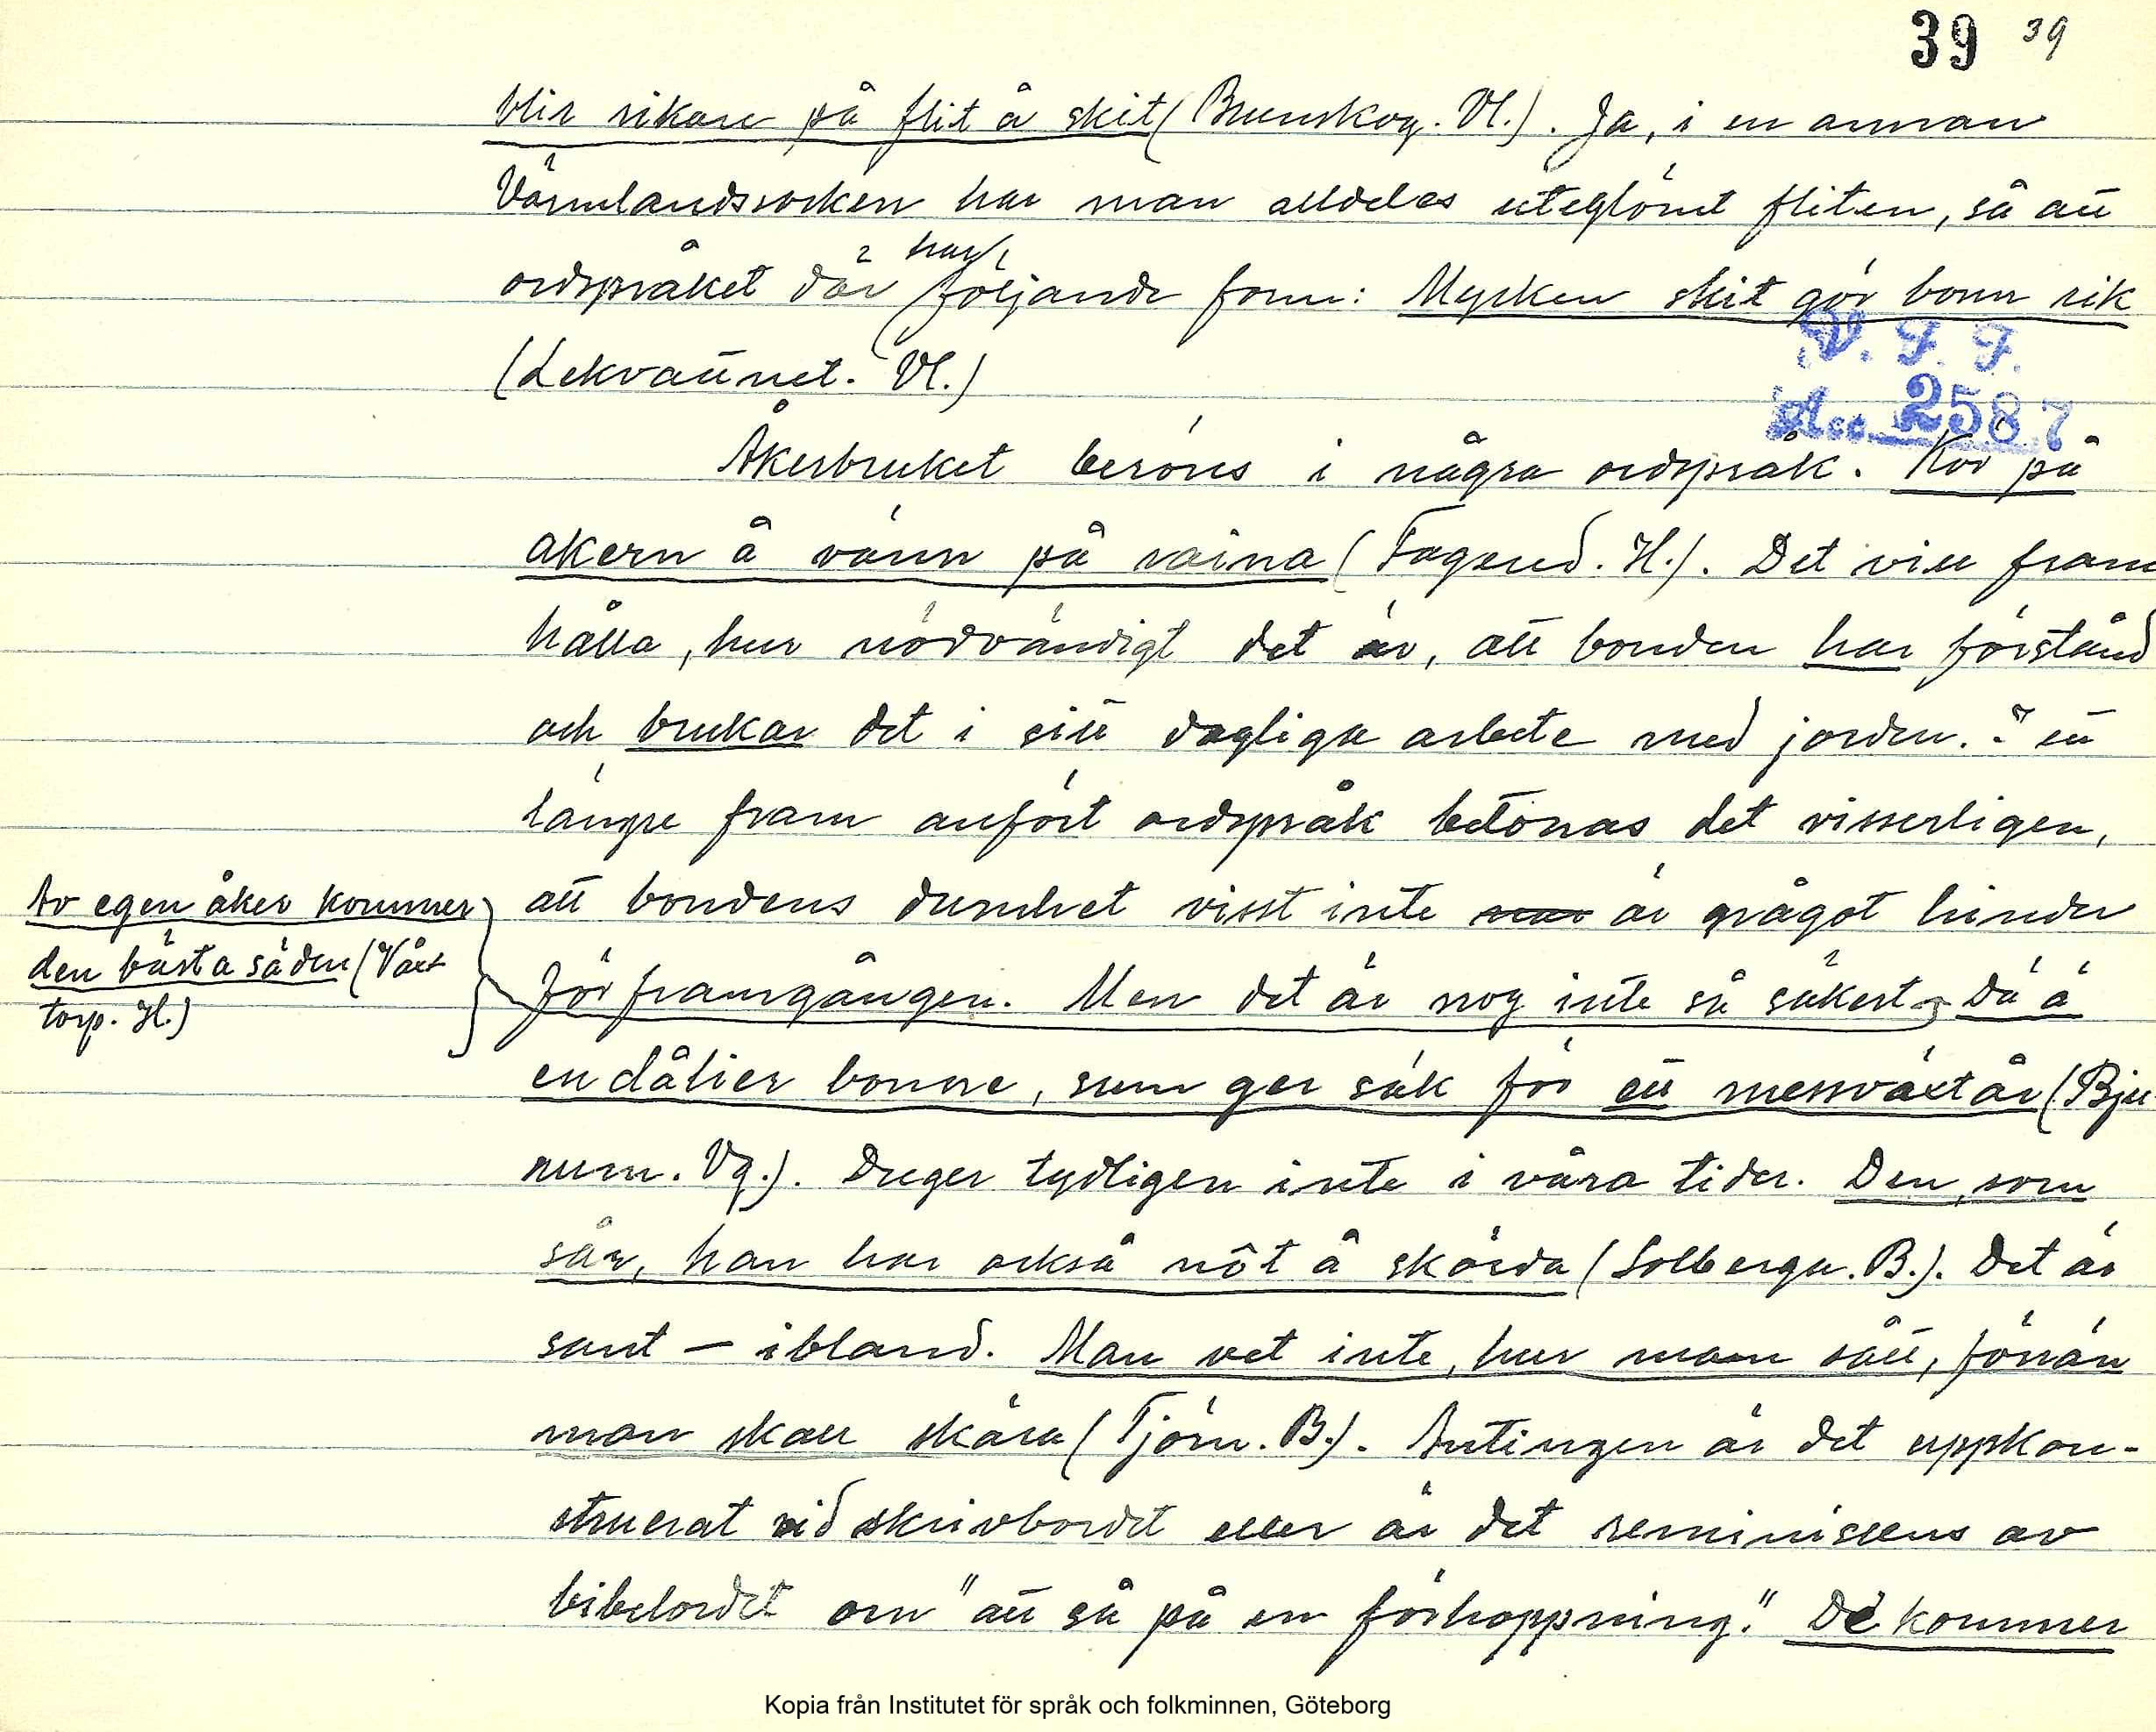 39 39
blir rikare på flit å skit (Brunskog. Vl.). Ja, i en annan
Värmlandssocken har man alldeles uteglömt fliten, så att
ordspråket där har följande form: Mycken skit gör bonn rik
(Lekvattnet. Vl.)
V. F. F.
Acc. 2587
Åkerbruket berörs i några ordspråk. Kör på
akern å vänn på raina (Fagered. H.). Det vill fram
hålla, hur nödvändigt det är, att bonden har förstånd
och brukar det i sitt dagliga arbete med jorden. I ett
längre fram anfört ordspråk betonas det visserligen,
att bondens dumhet visst inte är något hinder
för framgången. Men det är nog inte så säkert. Dä ä
en dålier bonne, sum ger säk för ett messväxtår (Bju-
num. Vg.). Duger tydligen inte i våra tider. Den, som
sår, han har också nôt å skörda (Solberga. B.). Det är
sant – ibland. Man vet inte, hur man sått, förrän
man skall skära (Tjörn. B.). Antingen är det uppkon-
struerat vid skrivbordet eller är det reminiscens av
bibelordet om "att så på en förhoppning." De kommer
Av egen åker kommer
den bästa säden (Våx
torp. H.)
Kopia från Institutet för språk och folkminnen, Göteborg